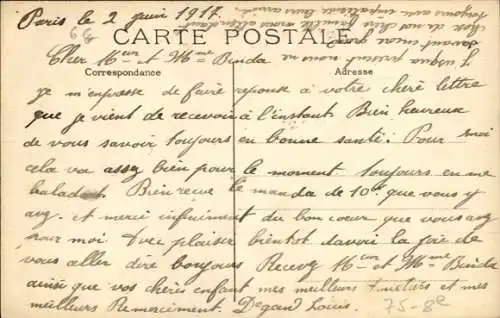 Paris le 2 juin 1917.
CARTE POSTALE
Cher Meur et Mme Benda
Correspondance
Adresse
je m'enpresse de faire reponse à votre cheré lettre
que je vient de recevoir à l'instant. Bien heureux
de vous savoir toujours en bonne santé: Pour moi
cela va assez bien pour le moment. toujours en me
baladant. Bien recue le manda de 10f. que vous y
avez. et merci infiniment du bon coeur que vous avez
pour moi Avec plaisir bientot davoir la joie de
vous aller dire bonjours Recevez Meur et Mme Benda
ainsi que vos cheris enfant mes meilleurs et mes
meilleurs Remerciment. Degand Louis.
75-8e
jusqua present nous
davant
toujours avec impatiente leurs